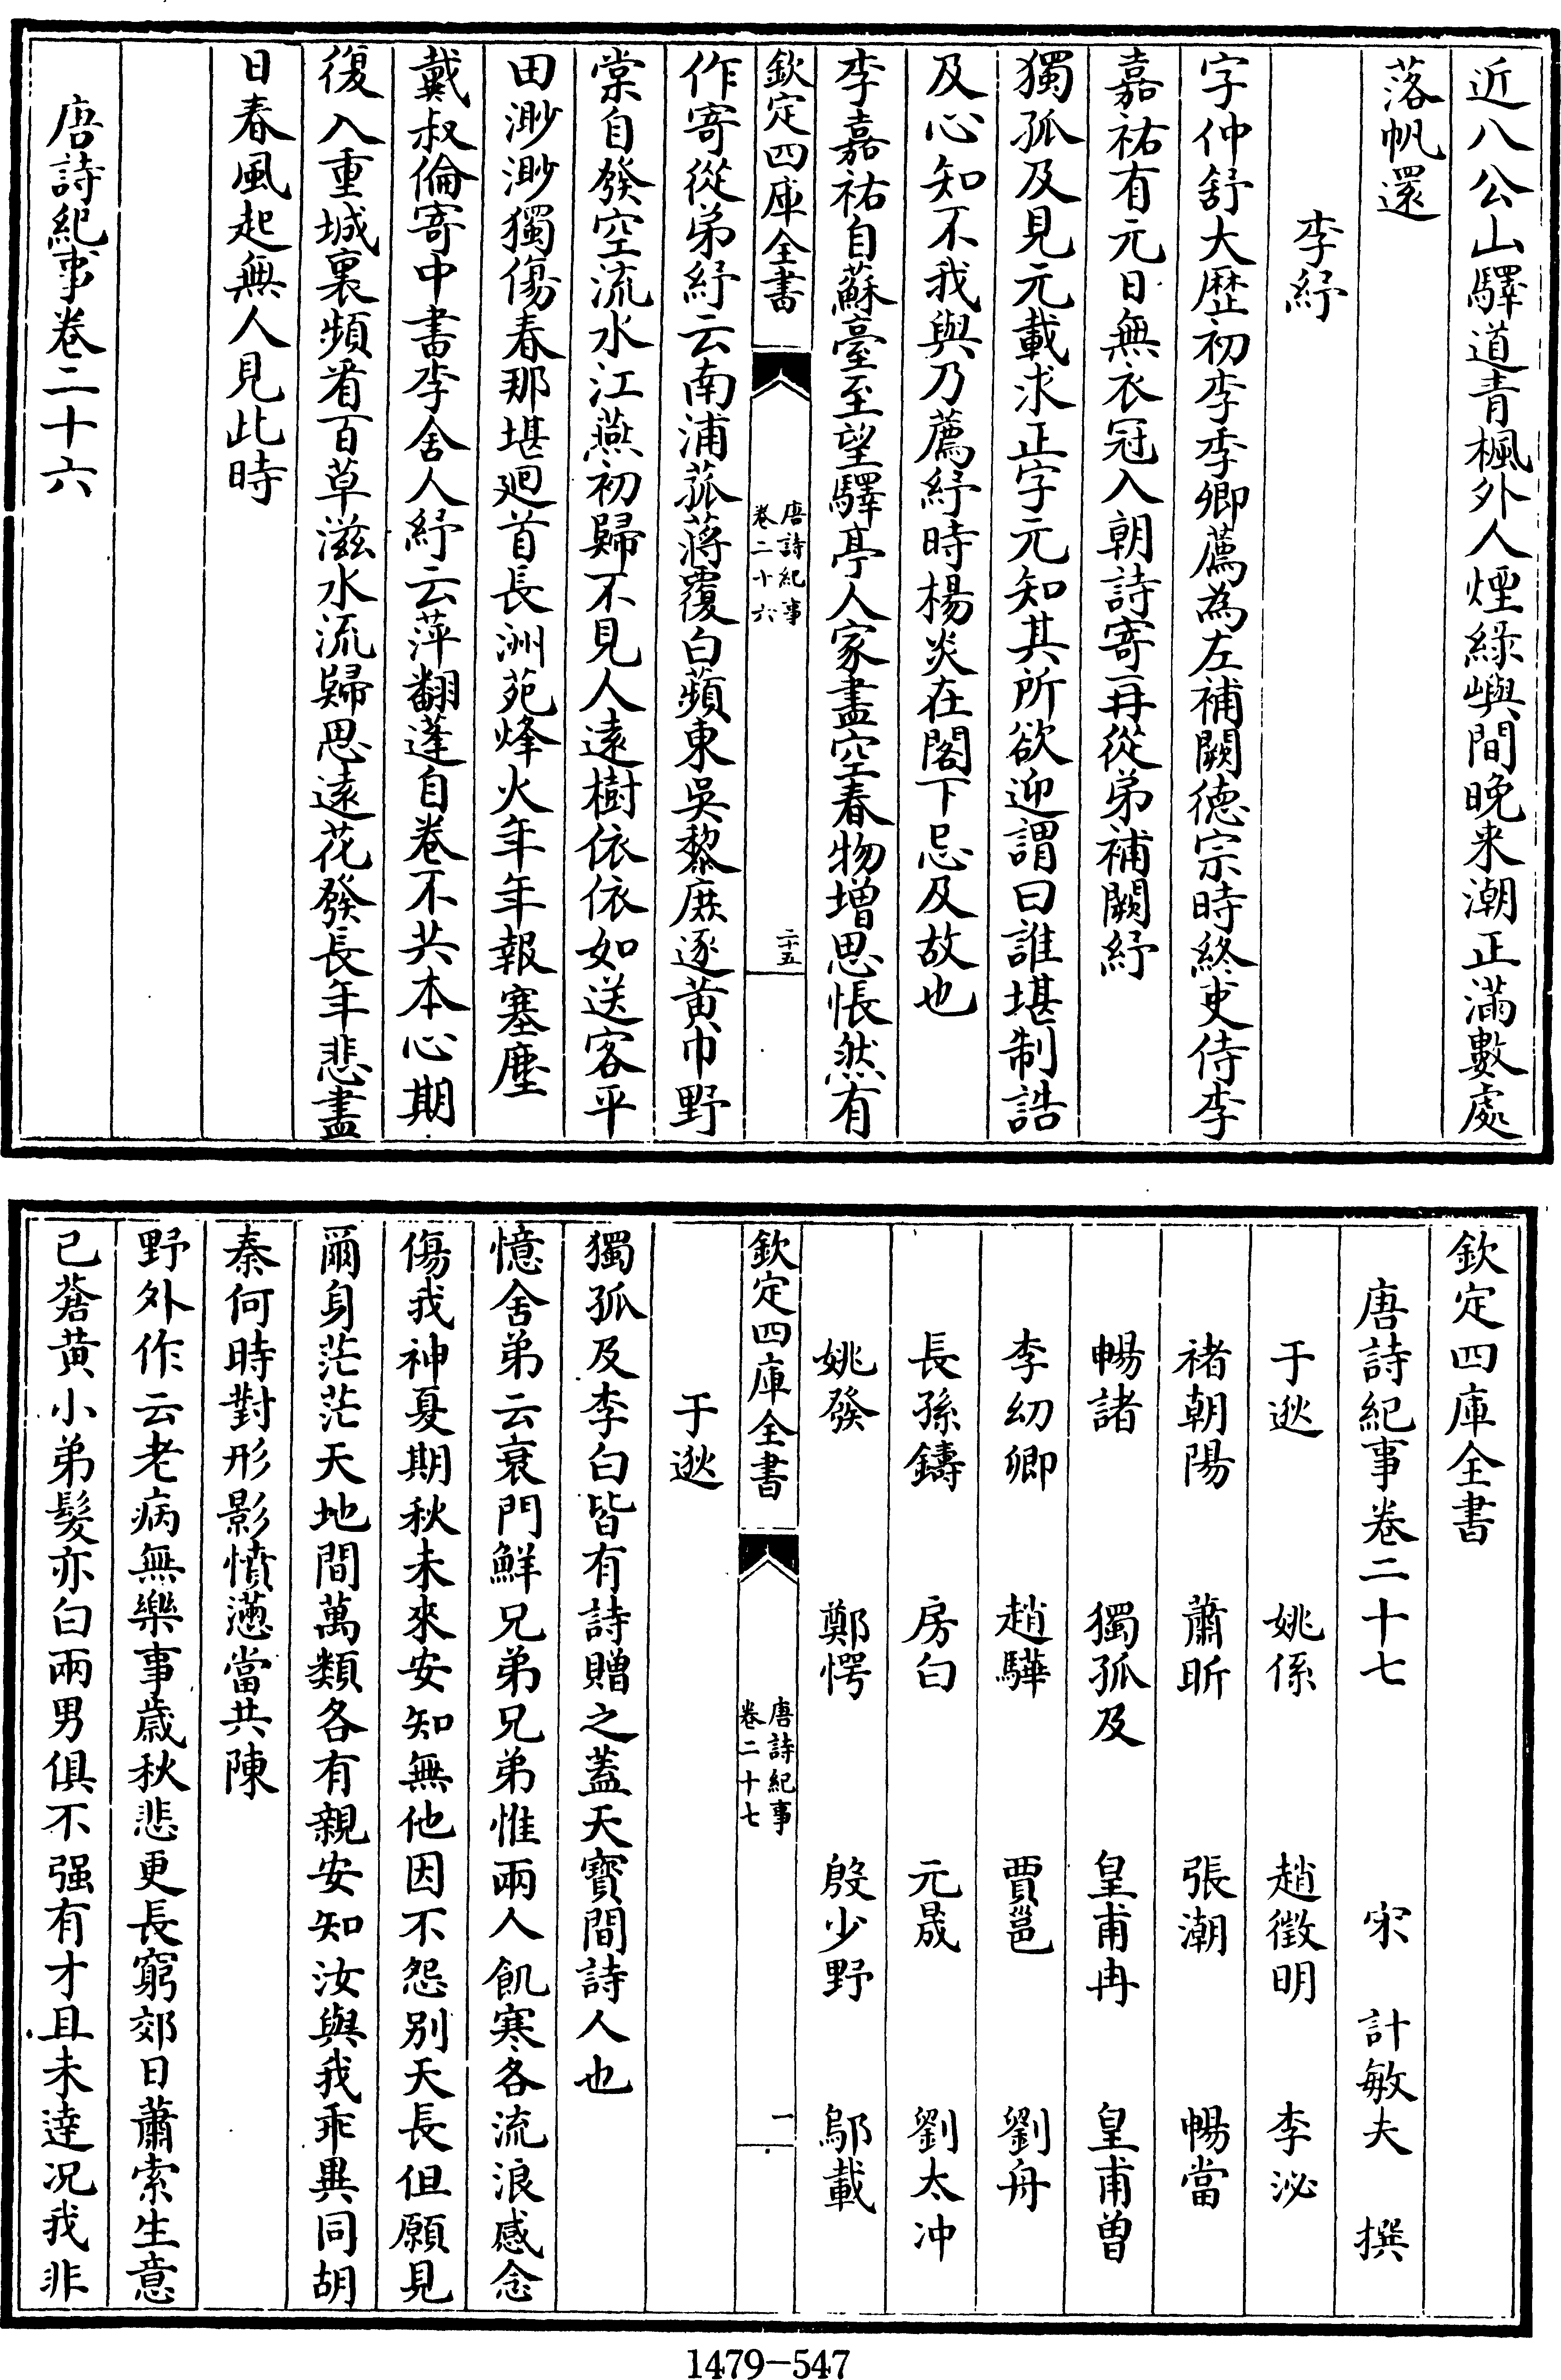 近八公山驛道青楓外人煙綠嶼間晚来潮正滿數處
落帆還
李紓
字仲舒大歴初李季卿薦為左補闕德宗時終吏侍李
嘉祐有元日無衣冠入朝詩寄再從弟補闕紓
獨孤及見元載求正字元知其所欲迎謂曰誰堪制誥
及心知不我與乃薦紓時楊炎在閣下忌及故也
李嘉祐自蘇臺至望驛亭人家盡空春物增思悵然有
欽定四庫全書
唐詩紀事
卷二十六
二十五
作寄從弟紓云南浦菰蔣覆白蘋東吳黎庶逐黄巾野
棠自發空流水江燕初歸不見人遠樹依依如送客平
田渺渺獨傷春那堪廻首長洲苑烽火年年報塞塵
戴叔倫寄中書李舍人紓云萍翻蓬自卷不共本心期
復入重城裏頻看百草滋水流歸思遠花發長年悲盡
日春風起無人見此時
唐詩紀事卷二十六
欽定四庫全書
唐詩紀事卷二十七 宋 計敏夫 撰
于逖 姚係 趙徵明 李泌
禇朝陽 蕭昕 張潮 暢當
暢諸 獨孤及 皇甫冉 皇甫曾
李幼卿 趙驊 賈邕 劉舟
長孫鑄 房白 元晟 劉太冲
姚發 鄭愕 殷少野 鄔載
欽定四庫全書
唐詩紀事
卷二十七
一
于逖
獨孤及李白皆有詩贈之蓋天寳間詩人也
憶舍弟云衰門鮮兄弟兄弟惟兩人飢寒各流浪感念
傷我神夏期秋未來安知無他因不怨别天長但願見
爾身茫茫天地間萬類各有親安知汝與我乖異同胡
秦何時對形影憤懣當共陳
野外作云老病無樂事歳秋悲更長窮郊日蕭索生意
已蒼黄小弟髮亦白兩男俱不强有才且未達况我非
1479-547